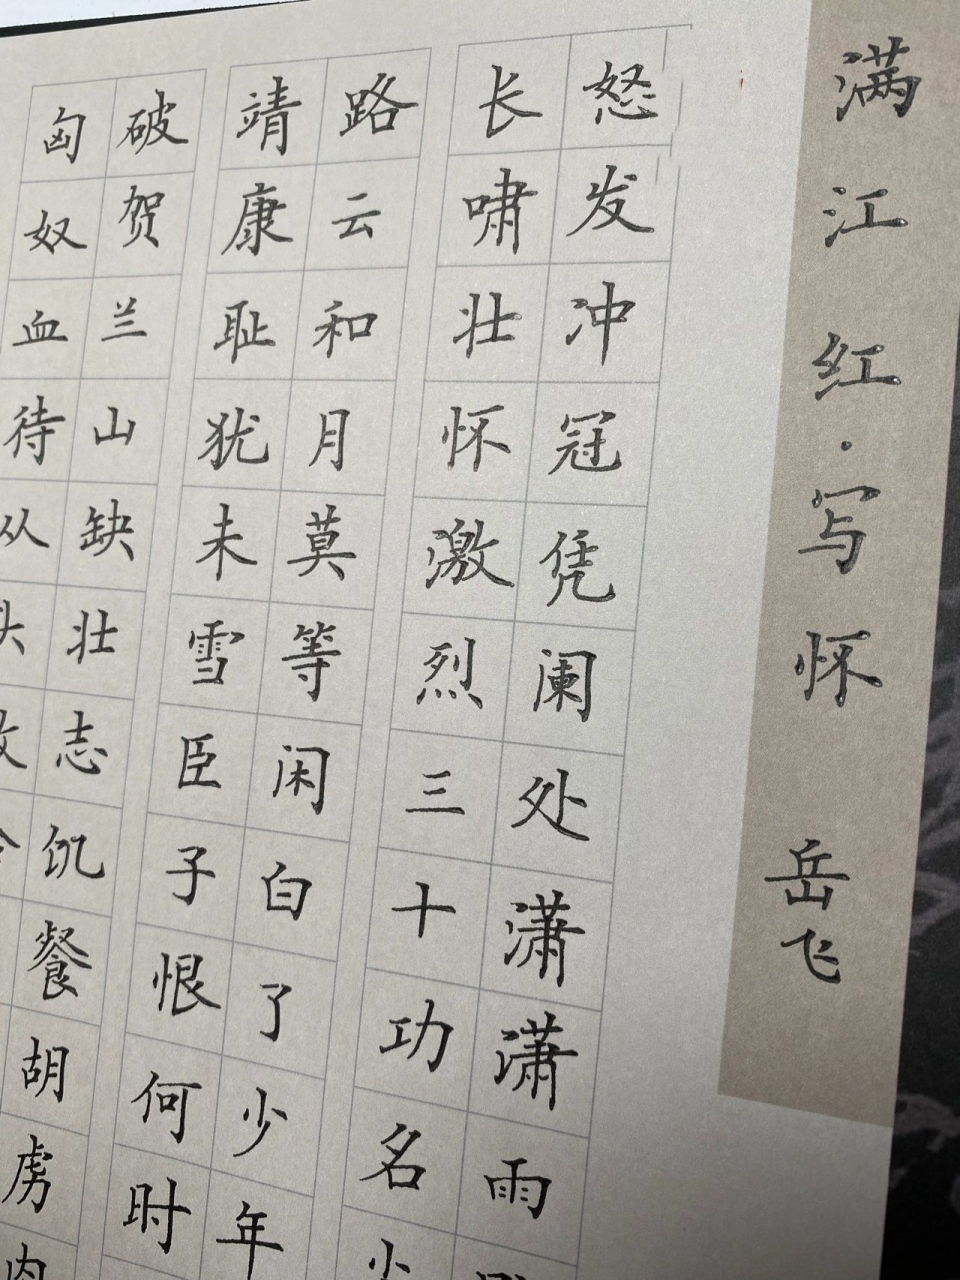 满江红·写怀
岳飞
怒发冲冠凭阑处潇潇雨
长啸壮怀激烈三十功名
路云和月莫等闲白了少年
靖康耻犹未雪臣子恨何时
破贺兰山缺壮志饥餐胡虏肉
匈奴血待从头